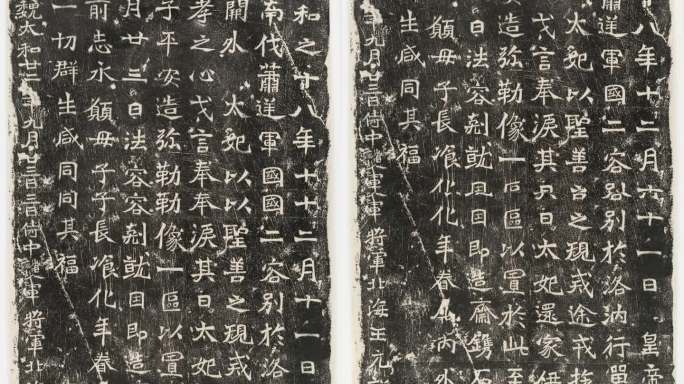 十八年十二月六十一日 皇帝
蕭逆軍國二容別於洛汭行留
太妃以聖善之規戎途戎
戈言奉淚其日太妃還家伊
安造弥勒像一區以置於此至
日法容剋就因即造齋鐫石
願母子長飡化年眷內外
生咸同其福
年九月廿三日侍中軍將軍北海王元詳
和之十八年十十二月十一日
南伐蕭逆軍國國二容別於洛
關水 太妃以以聖善之規戎
孝之心戈言奉奉淚其日太妃
子平安造弥勒勒像一區以置
月廿三日法容容剋就因即造
前志永願母子子長飡化年眷
一切群生咸同同其福
魏太和廿二年九月廿三日侍中軍將軍北海